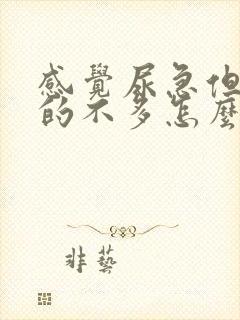 感覺尿急但
的不多怎麼
非藝